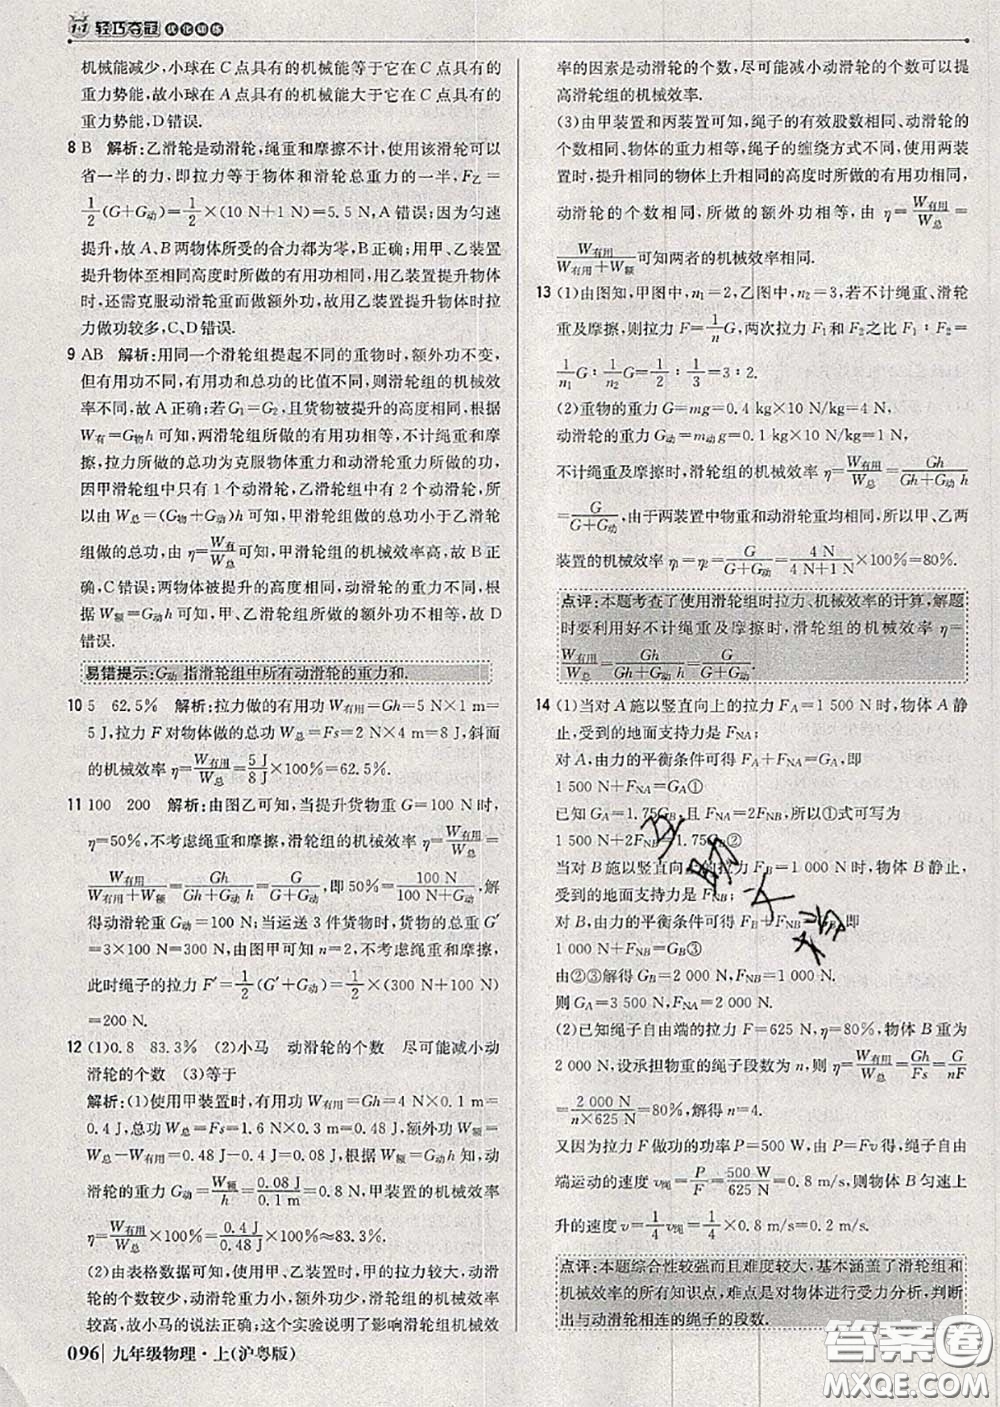 1+1 轻巧夺冠 优化训练
机械能减少,小球在 C 点具有的机械能等于它在 C 点具有的
重力势能,故小球在 A 点具有的机械能大于它在 C 点具有的
重力势能,D 错误.
8 B 解析:乙滑轮是动滑轮,绳重和摩擦不计,使用该滑轮可以
省一半的力,即拉力等于物体和滑轮总重力的一半,F乙=
1/2(G+G动)=1/2×(10 N+1 N)=5.5 N,A 错误;因为匀速
提升,故 A、B 两物体所受的合力都为零,B 正确;用甲、乙装置
提升物体至相同高度时所做的有用功相同,用乙装置提升物体
时,还需克服动滑轮重而做额外功,故用乙装置提升物体时拉
力做功较多,C、D 错误.
9 AB 解析:用同一个滑轮组提起不同的重物时,额外功不变,
但有用功不同,有用功和总功的比值不同,则滑轮组的机械效
率不同,故 A 正确;若 G₁=G₂,且货物被提升的高度相同,根据
W有=G物h 可知,两滑轮组所做的有用功相等,不计绳重和摩
擦,拉力所做的总功为克服物体重力和动滑轮重力所做的功,
因甲滑轮组中只有 1 个动滑轮,乙滑轮组中有 2 个动滑轮,所
以由 W总=(G物+G动)h 可知,甲滑轮组所做的总功小于乙滑轮
组做的总功,由 η=W有/W总 可知,甲滑轮组的机械效率高,故 B 正
确,C 错误;两物体被提升的高度相同,动滑轮的重力相同,根据
W额=G动h 可知,甲、乙滑轮组所做的额外功不相等,故 D
错误.
易错提示:G动 指滑轮组中所有动滑轮的重力和.
10 5 62.5% 解析:拉力做的有用功 W有用=Gh=5 N×1 m=
5 J,拉力 F 对物体做的总功 W总=Fs=2 N×4 m=8 J,斜面
的机械效率 η=W有用/W总=5 J/8 J×100%=62.5%.
11 100 200 解析:由图乙可知,当提升货物重 G=100 N 时,
η=50%,不考虑绳重和摩擦,滑轮组的机械效率 η=W有用/W总=
W有用/(W有用+W额)=Gh/(Gh+G动h)=G/(G+G动),即 50%=100 N/(100 N+G动),解
得动滑轮重 G动=100 N;当运送 3 件货物时,货物的总重 G′
=3×100 N=300 N,由图甲可知 n=2,不考虑绳重和摩擦,
此时绳子的拉力 F′=1/2(G′+G动)=1/2×(300 N+100 N)
=200 N.
12 (1)0.8 83.3% (2)小马 动滑轮的个数 尽可能减小动
滑轮的个数 (3)等于
解析:(1)使用甲装置时,有用功 W有用=Gh=4 N×0.1 m=
0.4 J,总功 W总=Fs=1.6 N×0.3 m=0.48 J,额外功 W额=
W总-W有用=0.48 J-0.4 J=0.08 J,根据 W额=G动h 知,动
滑轮的重力 G动=W额/h=0.08 J/0.1 m=0.8 N,甲装置的机械效率
η=W有用/W总×100%=0.4 J/0.48 J×100%≈83.3%.
(2)由表格数据可知,使用甲、乙装置时,甲的拉力较大,动滑
轮的个数较少,动滑轮重力小,额外功少,物体上升时机械效率
较高,故小马的说法正确;这个实验说明了影响滑轮组机械效
率的因素是动滑轮的个数,尽可能减小动滑轮的个数可以提
高滑轮组的机械效率.
(3)由甲装置和丙装置可知,绳子的有效股数相同、动滑轮的
个数相同、物体的重力相等,绳子的缠绕方式不同,使用两装
置时,提升相同的物体上升相同的高度时所做的有用功相同,
动滑轮的个数相同,所做的额外功相等,由 η=W有用/W总=
W有用/(W有用+W额)可知两者的机械效率相同.
13 (1)由图知,甲图中,n₁=2,乙图中,n₂=3,若不计绳重、滑轮
重及摩擦,则拉力 F=1/n G,两次拉力 F₁ 和 F₂ 之比 F₁∶F₂=
1/n₁ G∶1/n₂ G=1/2∶1/3=3∶2.
(2)重物的重力 G=mg=0.4 kg×10 N/kg=4 N,
动滑轮的重力 G动=m动g=0.1 kg×10 N/kg=1 N,
不计绳重及摩擦时,滑轮组的机械效率 η=W有用/W总=Gh/(Gh+G动h)
=G/(G+G动),由于两装置中物重和动滑轮重均相同,所以甲、乙两
装置的机械效率 η₁=η₂=G/(G+G动)=4 N/(4 N+1 N)×100%=80%.
点评:本题考查了使用滑轮组时拉力、机械效率的计算,解题
时要利用好不计绳重及摩擦时,滑轮组的机械效率 η=
W有用/W总=Gh/(Gh+G动h)=G/(G+G动).
14 (1)当对 A 施以竖直向上的拉力 FA=1 500 N 时,物体 A 静
止,受到的地面支持力是 FNA;
对 A,由力的平衡条件可得 FA+FNA=GA,即
1 500 N+FNA=GA①
已知 GA=1.75GB,且 FNA=2FNB,所以①式可写为
1 500 N+2FNB=1.75GB②
当对 B 施以竖直向上的拉力 FB=1 000 N 时,物体 B 静止,
受到的地面支持力是 FNB;
对 B,由力的平衡条件可得 FB+FNB=GB,即
1 000 N+FNB=GB③
由②③解得 GB=2 000 N,FNB=1 000 N.
则 GA=3 500 N,FNA=2 000 N.
(2)已知绳子自由端的拉力 F=625 N,η=80%,物体 B 重为
2 000 N,设承担物重的绳子段数为 n,则 η=W有用/W总=Gh/Fs=G/nF
=2 000 N/(n×625 N)=80%,解得 n=4.
又因为拉力 F 做功的功率 P=500 W,由 P=Fv 得,绳子自由
端运动的速度 v绳=P/F=500 W/625 N=0.8 m/s,所以物体 B 匀速上
升的速度 v=1/4 v绳=1/4×0.8 m/s=0.2 m/s.
点评:本题综合性较强而且难度较大,基本涵盖了滑轮组和
机械效率的所有知识点,难点是对物体进行受力分析,判断
出与动滑轮相连的绳子的段数.
096 九年级物理·上(沪粤版)
答案圈
MXQE.COM